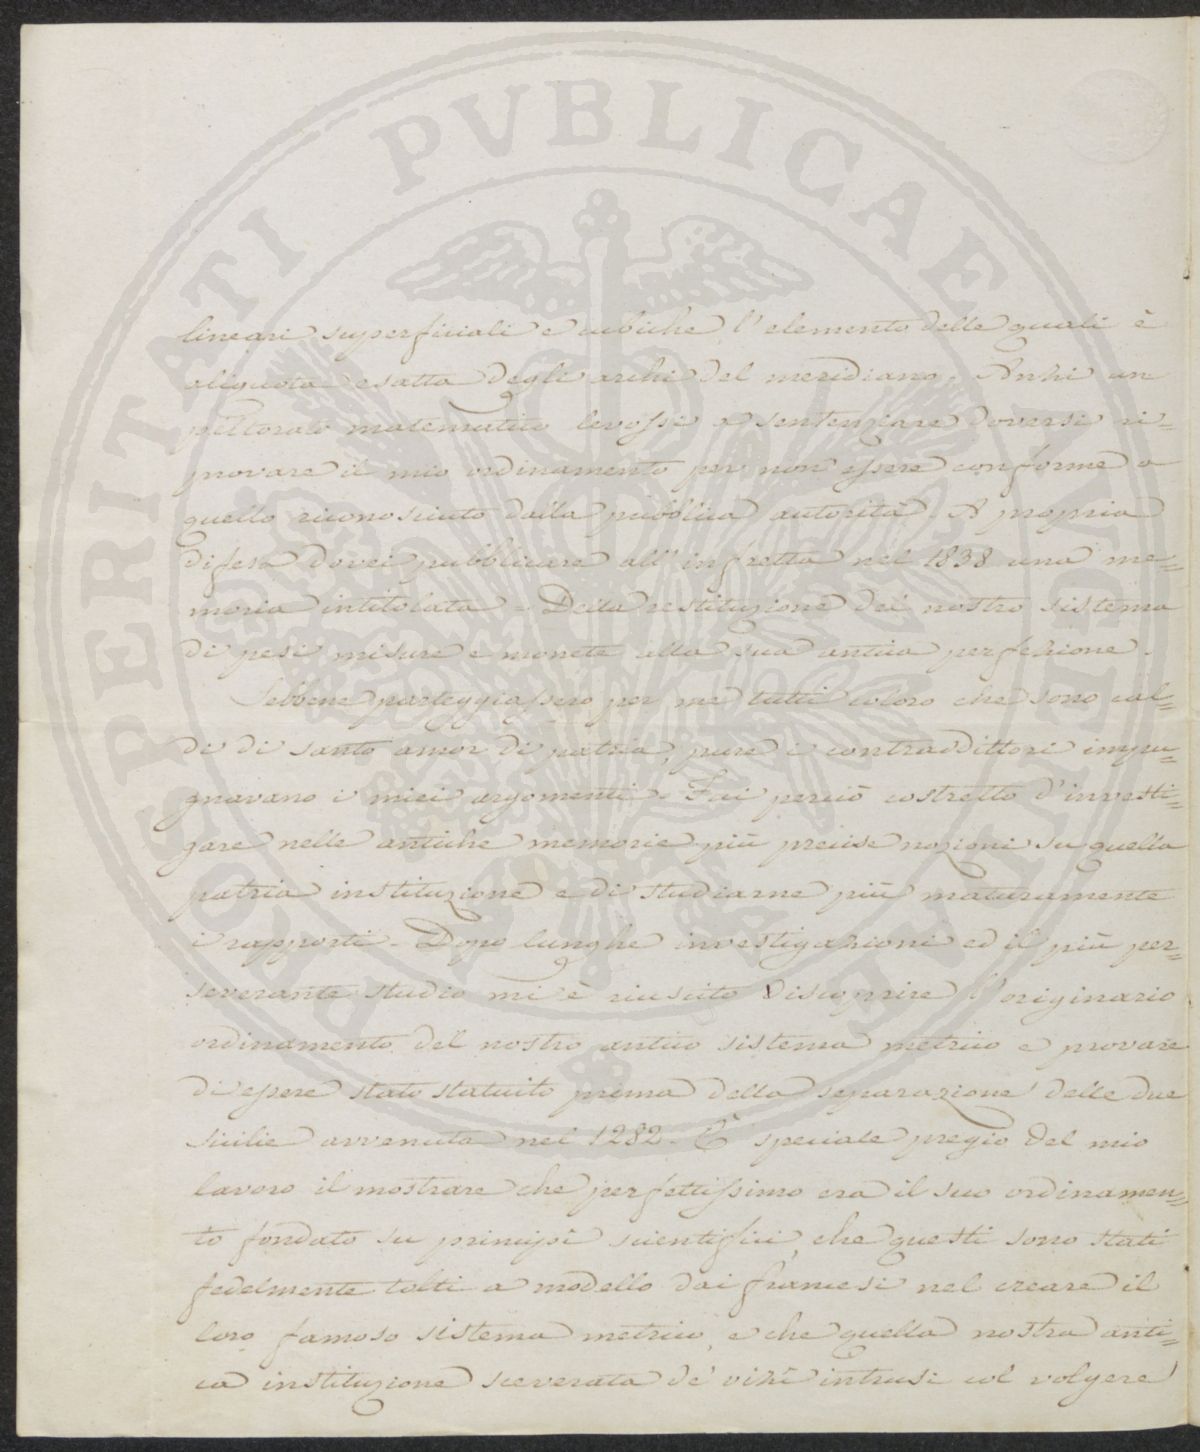 PROSPERITATI PVBLICAE AVGENDAE
lineari superficiali e cubiche, l'elemento delle quali è
aliquota esatta degli archi del meridiano. Anzi un
pettorato matematico levossi a sentenziare doversi ri=
provare il mio ordinamento per non essere conforme a
quello riconosciuto dalla pubblica autorità. A propria
difesa dovei pubblicare all'infretta nel 1838 una me=
moria intitolata = Della restituzione del nostro sistema
di pesi misure e monete alla sua antica perfezione.
Sebbene parteggiassero per me tutti coloro che sono cal=
di di santo amor di patria, pure i contraddittori impu=
gnavano i miei argomenti. Fui perciò costretto d'investi=
gare nelle antiche memorie più precise nozioni su quella
patria instituzione e di studiarne più maturamente
i rapporti. Dopo lunghe investigazioni ed il più per=
severante studio mi è riuscito discoprire l'originario
ordinamento del nostro antico sistema metrico e provare
di essere stato statuito prima della separazione delle due
Sicilie avvenuta nel 1282. È speciale pregio del mio
lavoro il mostrare che perfettissimo era il suo ordinamen=
to fondato su principî scientifici, che questi sono stati
fedelmente tolti a modello dai francesi nel creare il
loro famoso sistema metrico, e che quella nostra anti=
ca instituzione sceverata de' vizî intrusi col volgere